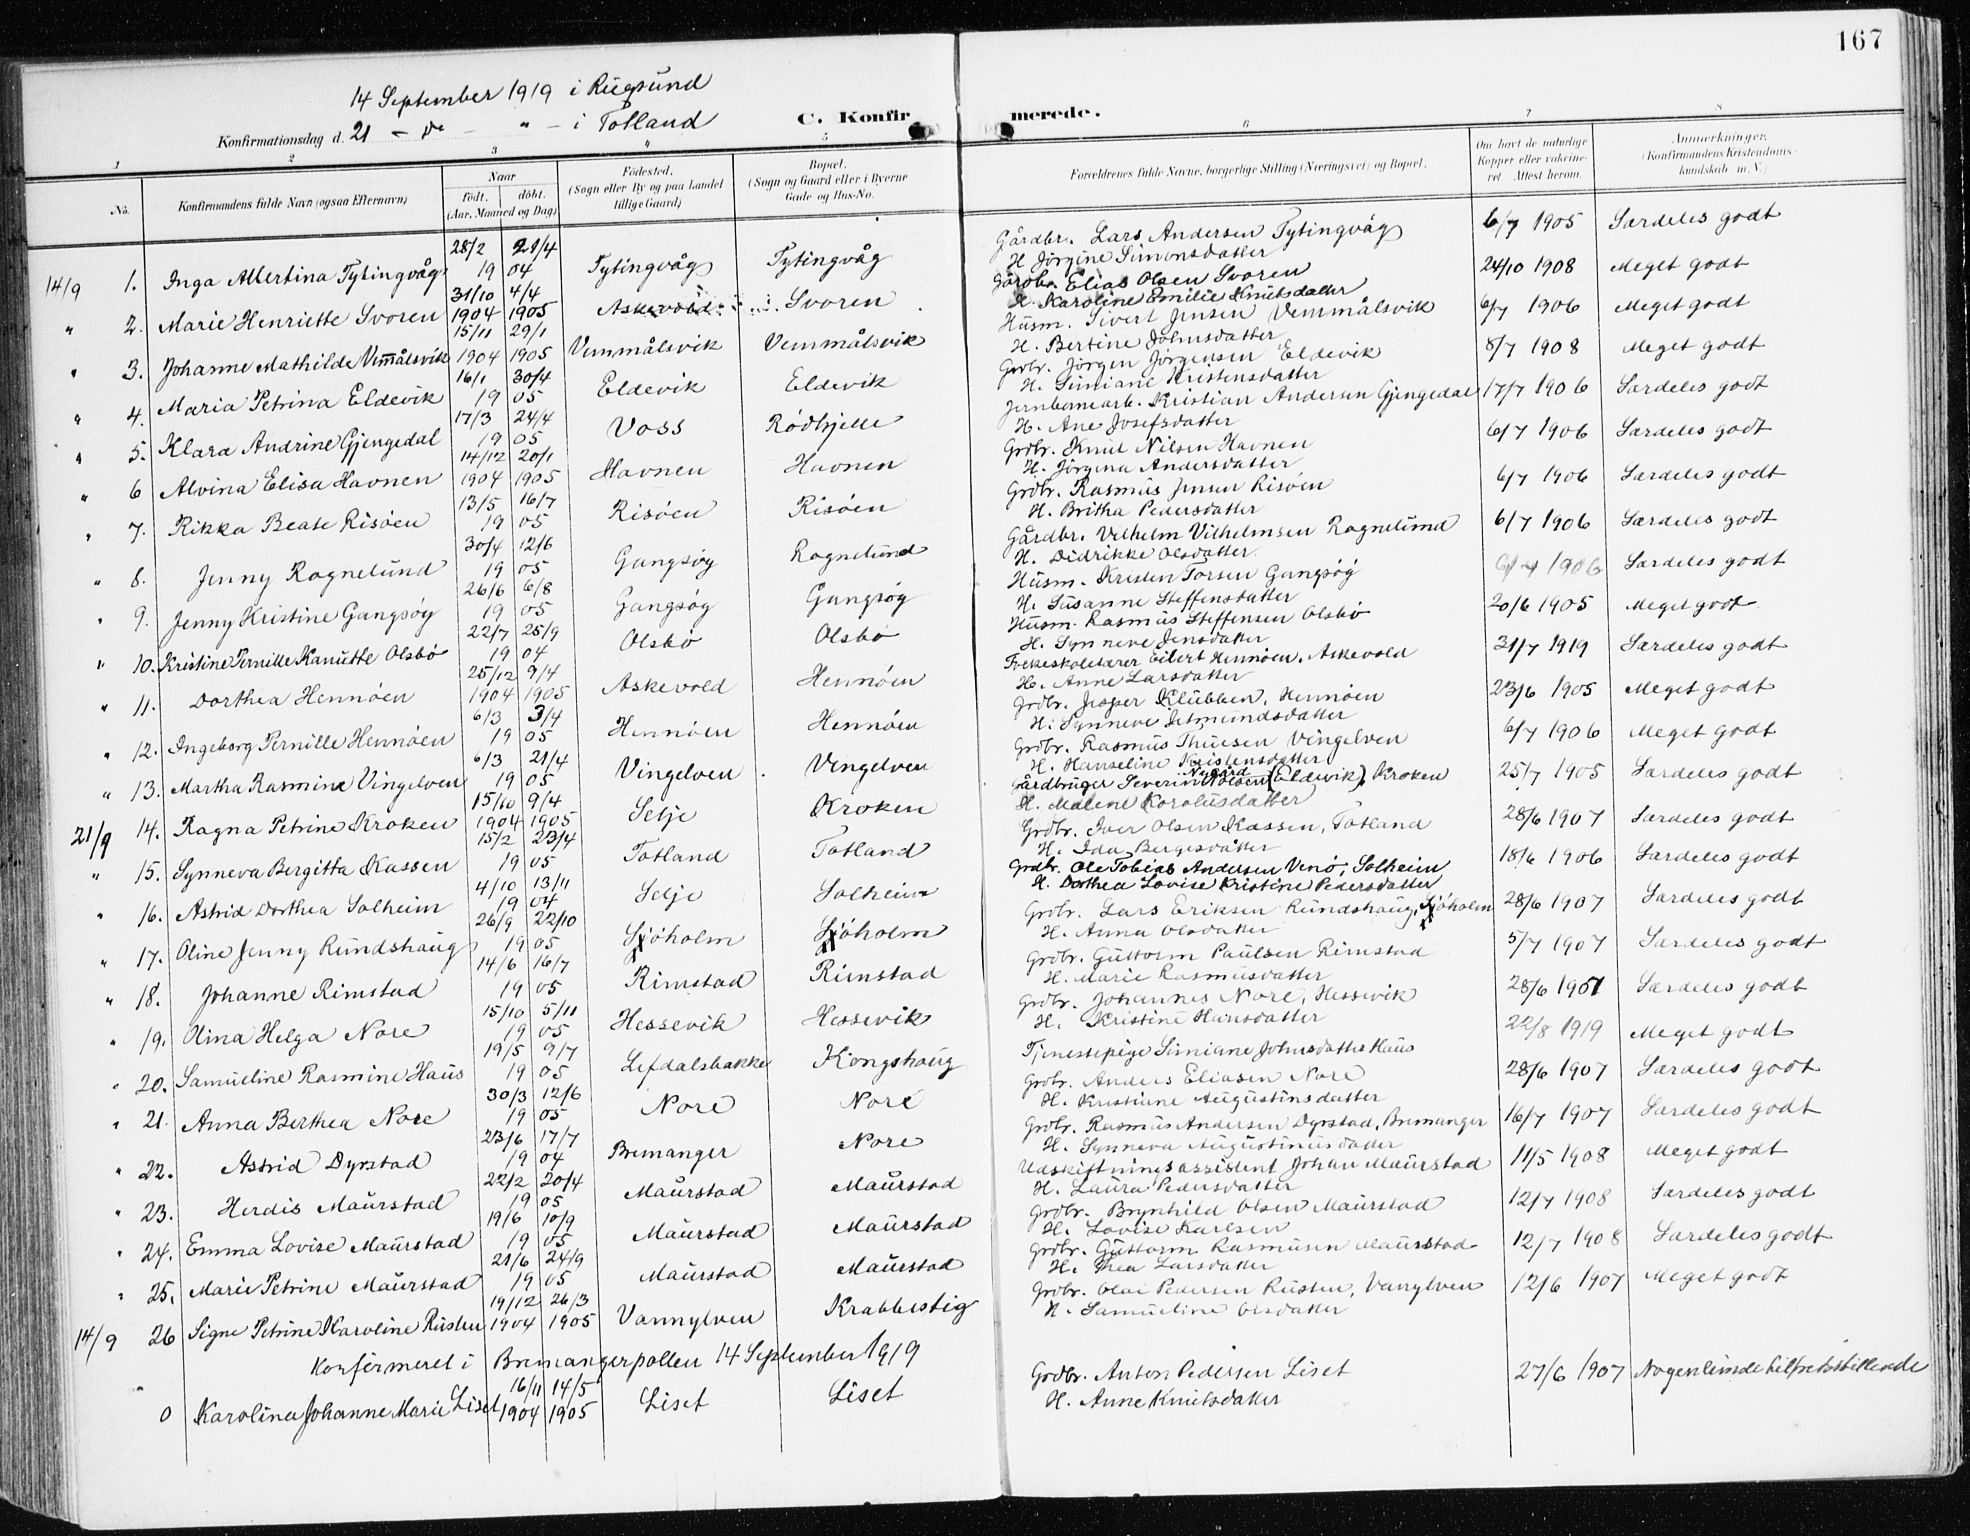 167
14 September 1919 i Rugsund
Konfirmationsdag d. 21 – de – " – i Totland
C. Konfirmerede.
1 2 3 4 5 6 7 8
No. Konfirmandens fulde Navn (ogsaa Efternavn) Naar født. døbt. (Aar, Maaned og Dag) Fødested. (Sogn eller By og paa Landet tillige Gaard) Bopæl. (Sogn og Gaard eller i Byerne Gade og Hus-No. Forældrenes fulde Navne, borgerlige Stilling (Næringsvei) og Bopæl. Om havt de naturlige Kopper eller vakcineret. Attest herom. Anmærkninger. (Konfirmandens Kristendomskundskab m. V.)
14/9 1. Inga Albertina Tytingvåg 28/2 21/4 19 04 Tytingvåg Tytingvåg Gårdbr. Lars Andersen Tytingvåg H. Jörgine Simonsdatter 6/7 1905 Særdeles godt
" 2. Marie Henriette Svoren 31/10 1904 4/4 1905 Askevold Svoren Gårdbr. Elias Olsen Svoren H. Karoline Emilie Knutsdatter 24/10 1908 Meget godt
" 3. Johanne Mathilde Vemmålsvik 15/11 1904 29/1 1905 Vemmålsvik Vemmålsvik Husm. Sivert Jensen Vemmålsvik H. Bertine Johnsdatter 6/7 1906 Meget godt
" 4. Maria Petrina Eldevik 16/1 30/4 19 05 Eldevik Eldevik Grdbr. Jörgen Jörgensen Eldevik H. Simiane Kristensdatter 8/7 1908 Meget godt
" 5. Klara Andrine Gjengedal 17/3 24/4 19 05 Voss Rödhjelle Jernbanearb. Kristian Andersen Gjengedal H. Ane Josefsdatter 17/7 1906 Særdeles godt
" 6 Alvina Elisa Havnen 14/12 1904 20/1 1905 Havnen Havnen Grdbr. Knut Nilsen Havnen H. Jörgina Andersdatter 6/7 1906 Særdeles godt
" 7. Rikka Beate Risöen 13/5 16/7 19 05 Risöen Risöen Grdbr. Rasmus Jensen Risöen H. Britha Pedersdatter 6/7 1906 Særdeles godt
" 8. Jenny Rognelund 30/4 12/6 19 05 Gangsöy Rognelund Gårdbr. Vilhelm Vilhelmsen Rognelund H. Didrikke Olsdatter 6/7 1906 Særdeles godt
" 9. Jenny Kristine Gangsöy 26/6 6/8 19 05 Gangsöy Gangsöy Husm. Kristen Torsen Gangsöy H. Susanne Steffensdatter 6/7 1906 Særdeles godt
" 10. Kristine Pernille Kanutte Olsbö 22/7 25/9 19 04 Olsbö Olsbö Husm. Rasmus Steffensen Olsbö H. Synneve Jensdatter 20/6 1905 Meget godt
" 11. Dorthea Hennöen 25/12 1904 9/4 1905 Askevold Hennöen Folkeskolelærer Eilert Hennöen, Askevold H. Anne Larsdatter 31/7 1919 Særdeles godt
" 12. Ingeborg Pernille Hennöen 6/3 3/4 19 05 Hennöen Hennöen Grdbr. Jesper Klubben, Hennöen H. Synneve Jetmundsdatter 23/6 1905 Meget godt
" 13. Martha Rasmine Vingelven 6/3 21/4 19 05 Vingelven Vengelven Grdbr. Rasmus Thuesen Vingelven H. Hanseline Kristensdatter 6/7 1906 Meget godt
21/9 14. Ragna Petrine Kroken 15/10 1904 9/4 1905 Selje Kroken Gårdbruger Severin Nygård Olsen (Eldevik), Kroken H. Malene Karolusdatter 25/7 1905 Særdeles godt
" 15. Synneva Bergitta Kassen 15/2 23/4 19 05 Totland Totland Grdbr. Iver Olsen Kassen, Totland H. Ida Bergesdatter 28/6 1907 Særdeles godt
" 16. Astrid Dorthea Solheim 4/10 13/11 19 04 Selje Solheim Grdbr. Ole Tobias Andersen Venö, Solheim H. Dorthea Lovise Kristine Pedersdatter 18/6 1906 Særdeles godt
" 17. Oline Jenny Rundshaug 26/9 22/10 19 05 Sjöholm Sjöholm Grdbr. Lars Eriksen Rundshaug, Sjöholm H. Anna Olsdatter 28/6 1907 Særdeles godt
" 18. Johanne Rimstad 14/6 16/7 19 05 Rimstad Rimstad Grdbr. Guttorm Paulsen Rimstad H. Marie Rasmusdatter 5/7 1907 Særdeles godt
" 19. Olina Helga Nore 15/10 5/11 19 05 Hessevik Hessevik Grdbr. Johannes Nore, Hessevik H. Kristine Hansdatter 28/6 1907 Særdeles godt
" 20. Samueline Rasmine Haus 19/5 9/7 19 05 Lefdalsbakke Kongshaug Tjenestepige Simiane Johnsdatter Haus 22/8 1919 Meget godt
" 21. Anna Berthea Nore 30/3 12/6 19 05 Nore Nore Grdbr. Anders Eliasen Nore H. Kristiane Augustinsdatter 28/6 1907 Særdeles godt
" 22. Astrid Dyrstad 23/6 17/7 19 04 Bremanger Nore Grdbr. Rasmus Andersen Dyrstad, Bremanger H. Synneva Augustinusdatter 16/7 1907 Særdeles godt
" 23. Herdis Maurstad 22/2 20/4 19 05 Maurstad Maurstad Udskiftningsassistent Johan Maurstad H. Laura Pedersdatter 11/5 1908 Meget godt
" 24. Emma Lovise Maurstad 19/6 10/9 19 05 Maurstad Maurstad Grdbr. Brynhild Olsen Maurstad H. Lovise Karlsen 12/7 1908 Særdeles godt
" 25. Marie Petrine Maurstad 21/6 24/9 19 05 Maurstad Maurstad Grdbr. Guttorm Rasmusen Maurstad H. Thea Larsdatter 12/7 1908 Særdeles godt
14/9 26 Signe Petrine Karoline Rusten 19/12 1904 26/3 1905 Vannylven Krabbestig Grdbr. Olai Pedersen Rusten, Vanylven H. Samueline Olsdatter 12/6 1907 Meget godt
Konfirmeret i Bremangerpollen 14 September 1919
0 Karolina Johanne Marie Liset 16/11 1904 14/5 1905 Liset Liset Grdbr. Anton Pedersen Liset H. Anne Knutsdatter 27/6 1907 Nogenlunde tilfredsstillende